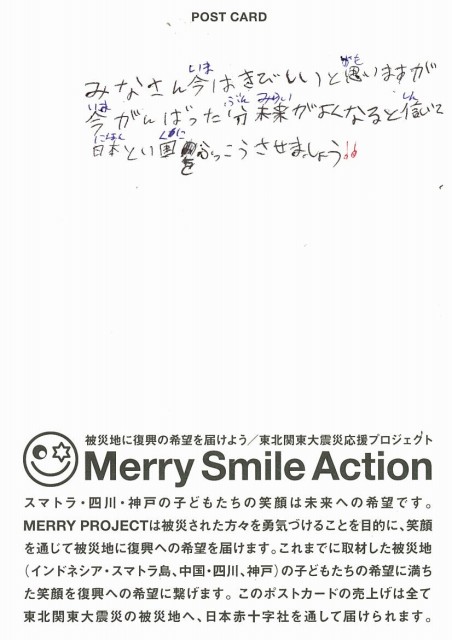 POST CARD
みなさん今はきびしいと思いますが
今がんばった分未来がよくなると信いて
日本とい国をふっこうさせましょう!!
被災地に復興の希望を届けよう/東北関東大震災応援プロジェクト
Merry Smile Action
スマトラ・四川・神戸の子どもたちの笑顔は未来への希望です。
MERRY PROJECTは被災された方々を勇気づけることを目的に、笑顔
を通じて被災地に復興への希望を届けます。これまでに取材した被災地
(インドネシア・スマトラ島、中国・四川、神戸)の子どもたちの希望に満ち
た笑顔を復興への希望に繋げます。このポストカードの売上げは全て
東北関東大震災の被災地へ、日本赤十字社を通して届けられます。